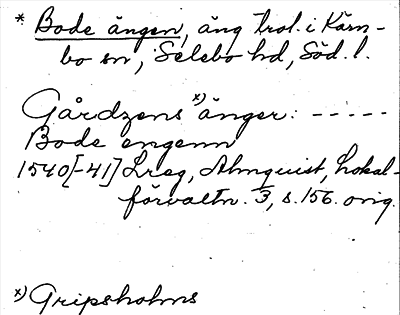 * Bode ängen, äng trol. i Kärn-
bo sn, Selebo hd, Söd. l.
Gårdzens x) änger: - - - - -
Bode engenn
1540[-41] Lreg, Almquist, Lokal-
förvaltn. 3, s. 156. orig.
x) Gripsholms